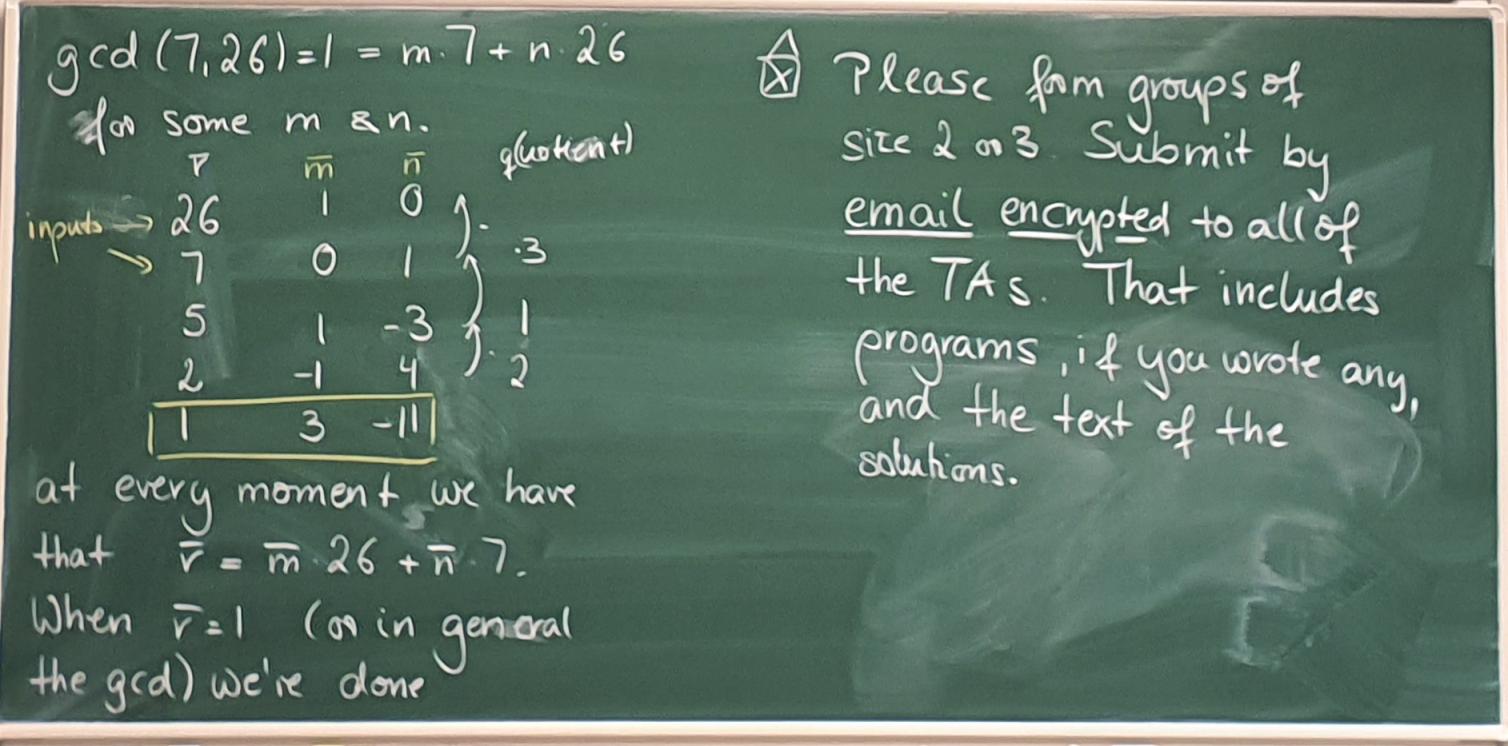 gcd (7,26)=1 = m·7 + n·26
for some m & n.
r̄ m̄ n̄ q(uotient)
inputs → 26 1 0
→ 7 0 1 ·3
5 1 -3 1
2 -1 4 2
1 3 -11
at every moment we have
that r̄ = m̄ 26 + n̄·7.
When r̄=1 (or in general
the gcd) we're done
Please form groups of
size 2 or 3. Submit by
email encrypted to all of
the TAs. That includes
programs, if you wrote any,
and the text of the
solutions.